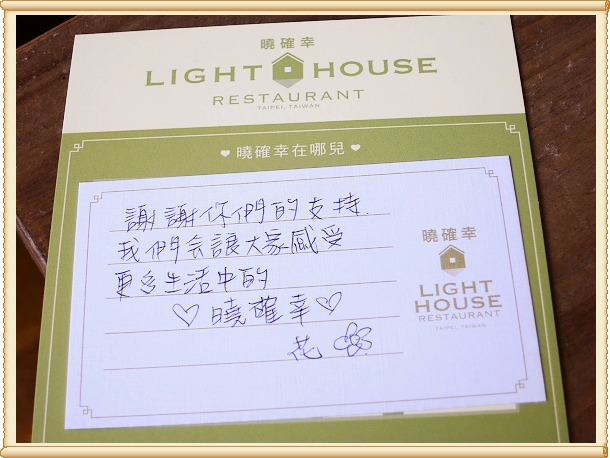 曉確幸
LIGHT HOUSE
RESTAURANT
TAIPEI, TAIWAN
曉確幸在哪兒
謝謝你們的支持.
我們会讓大家感受
更多生活中的
曉確幸
花
曉確幸
LIGHT
HOUSE
RESTAURANT
TAIPEI, TAIWAN